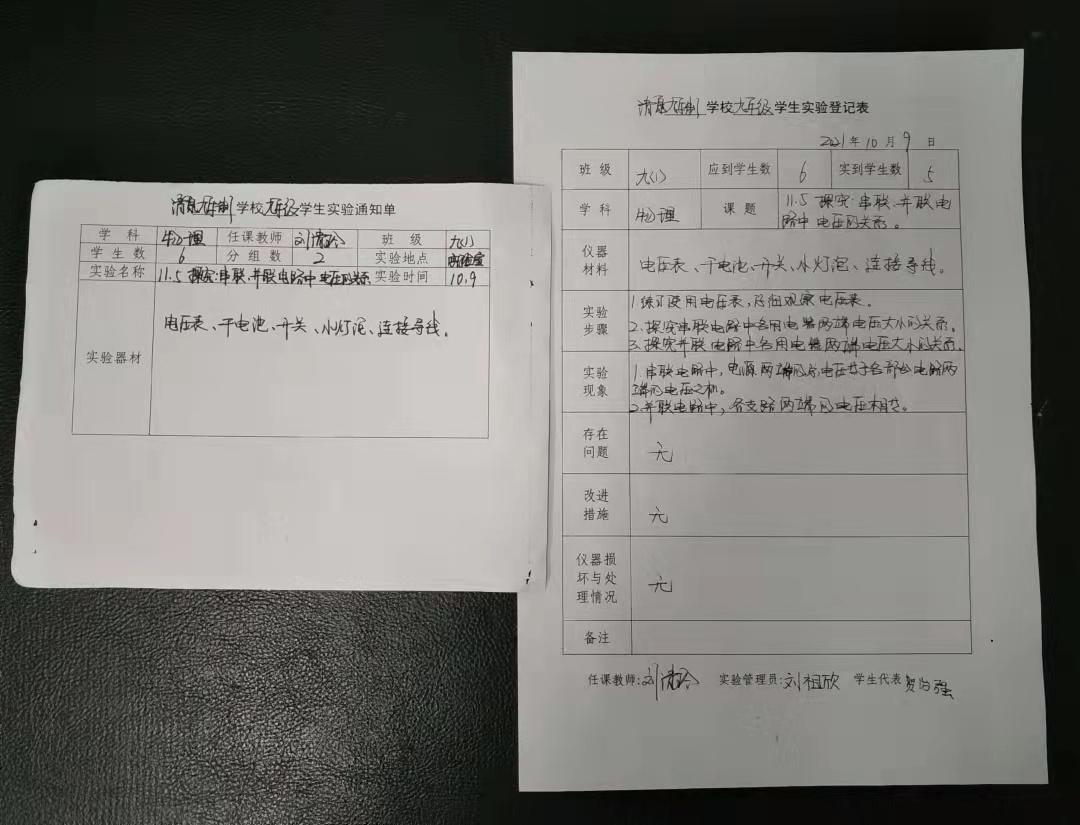 九年制学校九年级学生实验通知单
学科 物理 任课教师 班级 九(1)
学生数 6 分组数 2 实验地点 实验室
实验名称 11.5 探究串联、并联电路中电压的关系 实验时间 10.9
实验器材
电压表、干电池、开关、小灯泡、连接导线。
九年制学校九年级学生实验登记表
2021年10月9日
班级 九(1) 应到学生数 6 实到学生数 5
学科 物理 课题 11.5 探究串联、并联电路中电压的关系。
仪器材料 电压表、干电池、开关、小灯泡、连接导线。
实验步骤
1.练习使用电压表,仔细观察电压表。
2.探究串联电路中各用电器两端电压大小的关系。
3.探究并联电路中各用电器两端电压大小的关系。
实验现象
1.串联电路中,电源两端的总电压等于各部分电路两端的电压之和。
2.并联电路中,各支路两端的电压相等。
存在问题 无
改进措施 无
仪器损坏与处理情况 无
备注
任课教师: 实验管理员:刘祖欣 学生代表